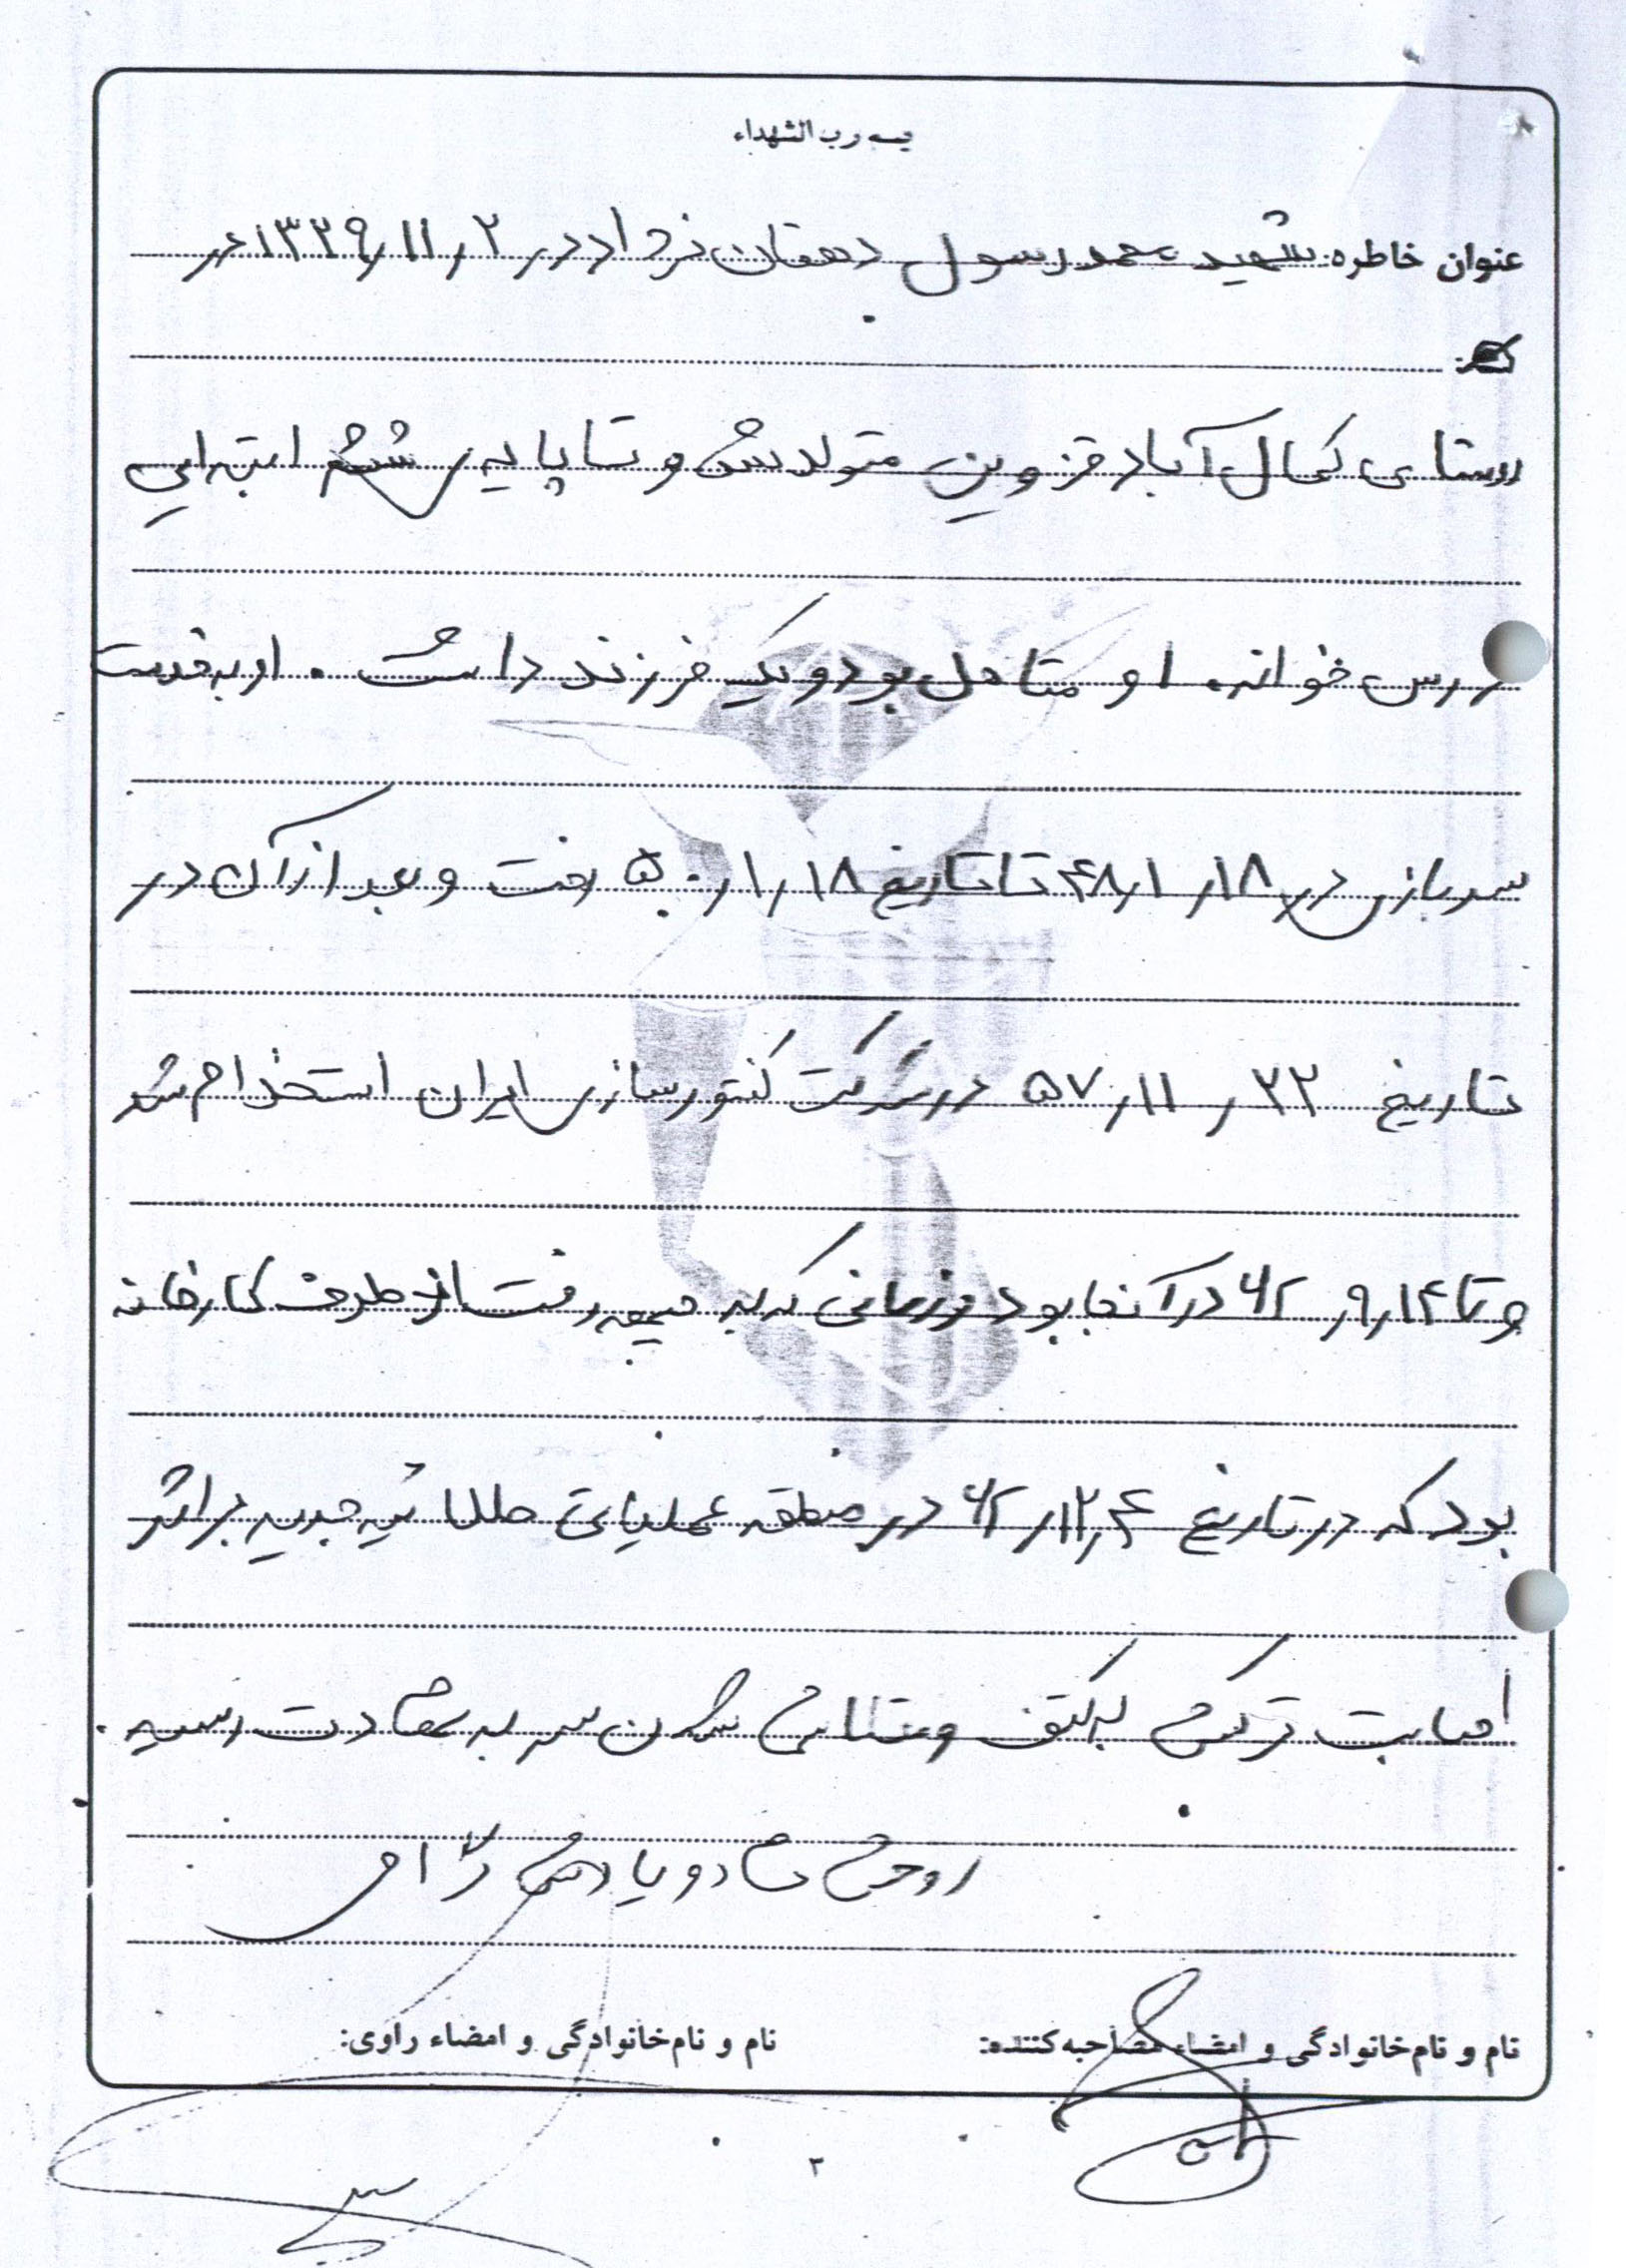 بسمه رب الشهداء
عنوان خاطره: شهید محمد رسول دهقان نژاد در ۲ر۱۱ر۱۳۲۹ در
روستای کمال آباد قزوین متولد شد و تا پایه ی ششم ابتدایی
درس خواند. او متاهل بود و یک فرزند داشت. او به خدمت
سربازی در ۱۸ر۱ر۴۸ تا تاریخ ۱۸ر۱ر۵۰ رفت و بعد از آن در
تاریخ ۲۳ر۱۱ر۵۷ در شرکت کنتورسازی ایران استخدام شد
و تا ۱۴ر۹ر۶۲ در آنجا بود و زمانی که به جبهه رفت از طرف کارخانه
بود که در تاریخ ۴ر۱۲ر۶۲ در منطقه عملیاتی طلائیه جدید بر اثر
اصابت ترکش به کتف و متلاشی شدن سر به شهادت رسید.
روحش شاد و یادش گرامی
نام و نام خانوادگی و امضاء مصاحبه کننده:
نام و نام خانوادگی و امضاء راوی:
۲